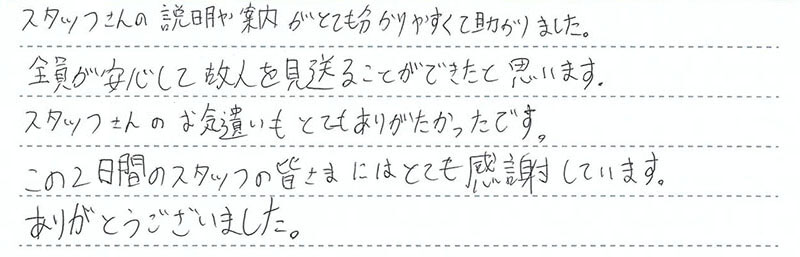 スタッフさんの説明や案内がとても分かりやすくて助かりました。
全員が安心して故人を見送ることができたと思います。
スタッフさんのお気遣いもとてもありがたかったです。
この2日間のスタッフの皆さまにはとても感謝しています。
ありがとうございました。